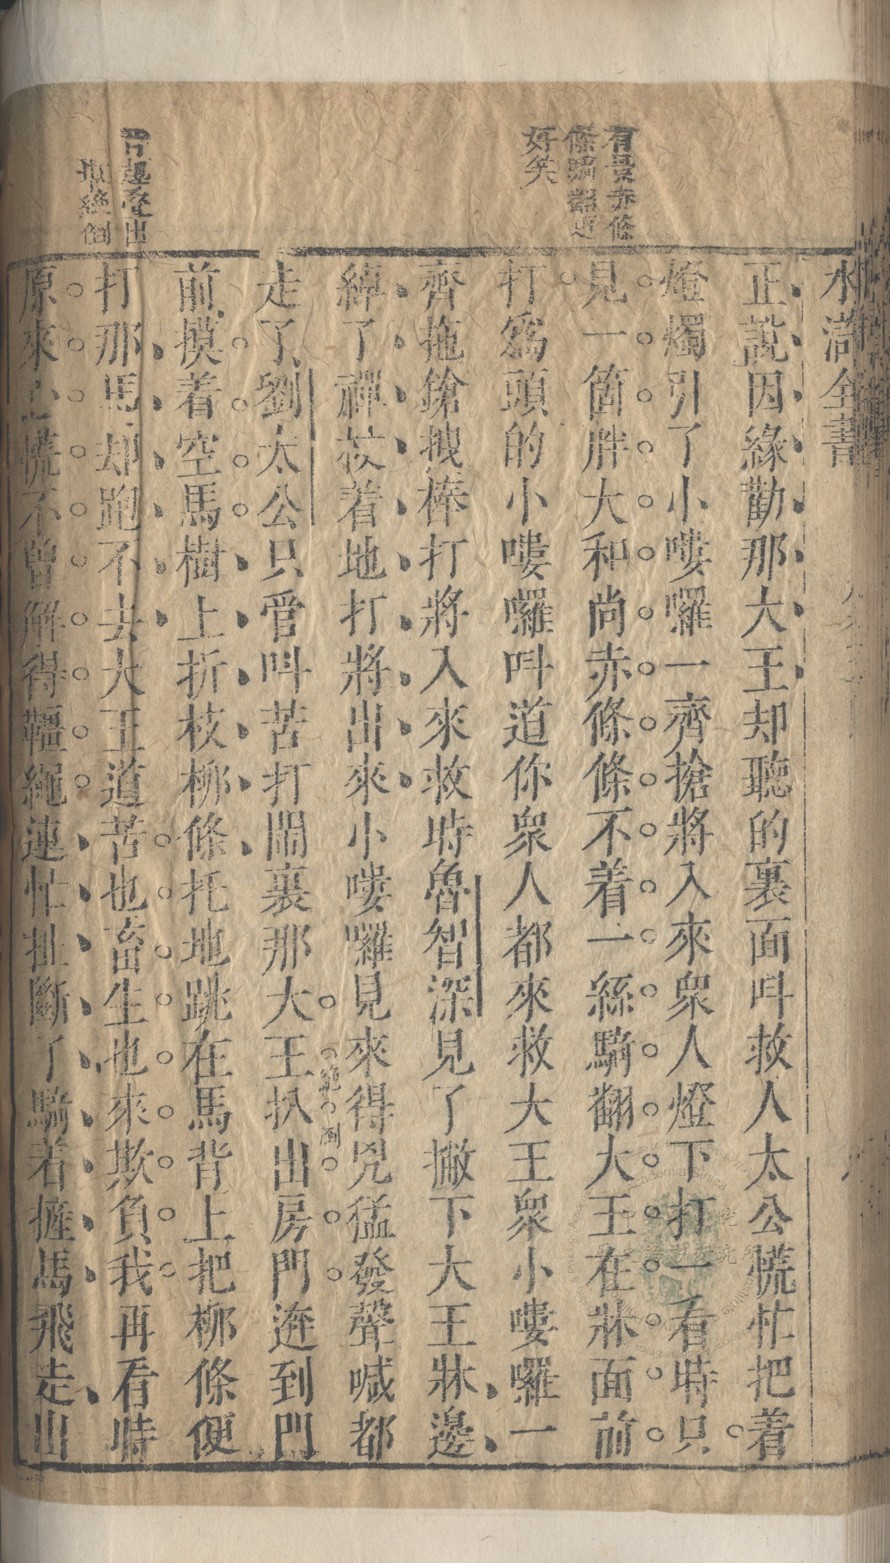 水滸全書
正說因緣勸那大王却聽的裏面呌救人太公慌忙把着
燈燭引了小嘍囉一齊搶將入來衆人燈下打一看時只
見一箇胖大和尚赤條條不着一絲騎翻大王在牀面前
打爲頭的小嘍囉呌道你衆人都來救大王衆小嘍囉一
齊拖鎗拽棒打將入來救時魯智深見了撇下大王牀邊
綽了禪杖着地打將出來小嘍囉見來得兇猛發聲喊都
走了劉太公只管呌苦打鬧裏那大王扒出房門逩到門
前摸着空馬樹上折枝柳條托地跳在馬背上把柳條便
打那馬却跑不去大王道苦也畜生也來欺負我再看時
原來心慌不曾解得韁繩連忙扯斷了騎着摌馬飛走出
有景赤條
條騎翻更
好笑
絶倒